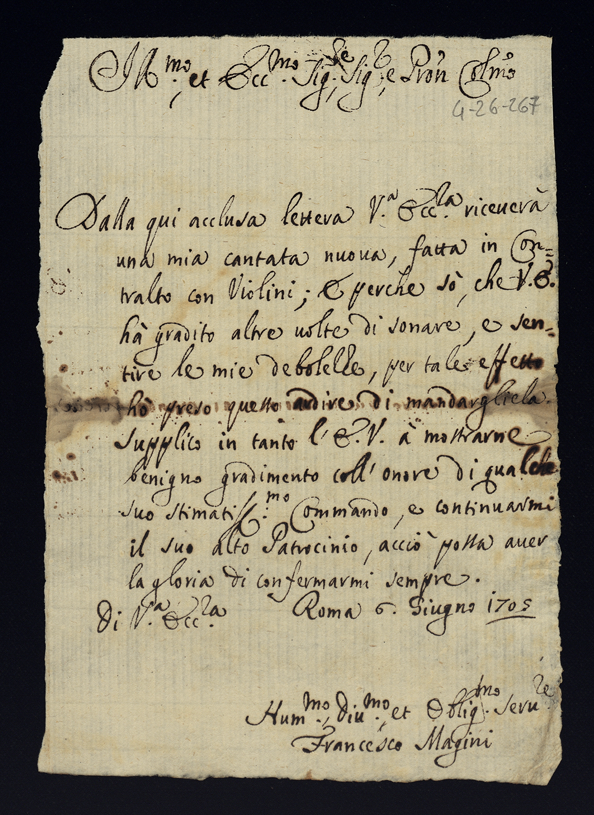 Ill.mo, et Ecc.mo Sig.re Sig.r, e Pron Colmo
4-26-267
Dalla qui acclusa lettera V.a Ecc.la riceuerà
una mia cantata nuoua, fatta in Con=
tralto con Violini; E perche sò, che V.E.
hà gradito altre uolte di sonare, e sen=
tire le mie debolelle, per tale effetto
hò preso questo ardire di mandargliela.
supplico in tanto l'E.V. à mostrarne
benigno gradimento coll'onore di qualche
suo stimatiss.mo Commando, e continuarmi
il suo alto Patrocinio, acciò possa auer
la gloria di confermarmi sempre.
Di V.a Ecc.la Roma 6. Giugno 1705
Hum.mo, Diu.mo, et Oblig.mo Seru.re
Francesco Magini